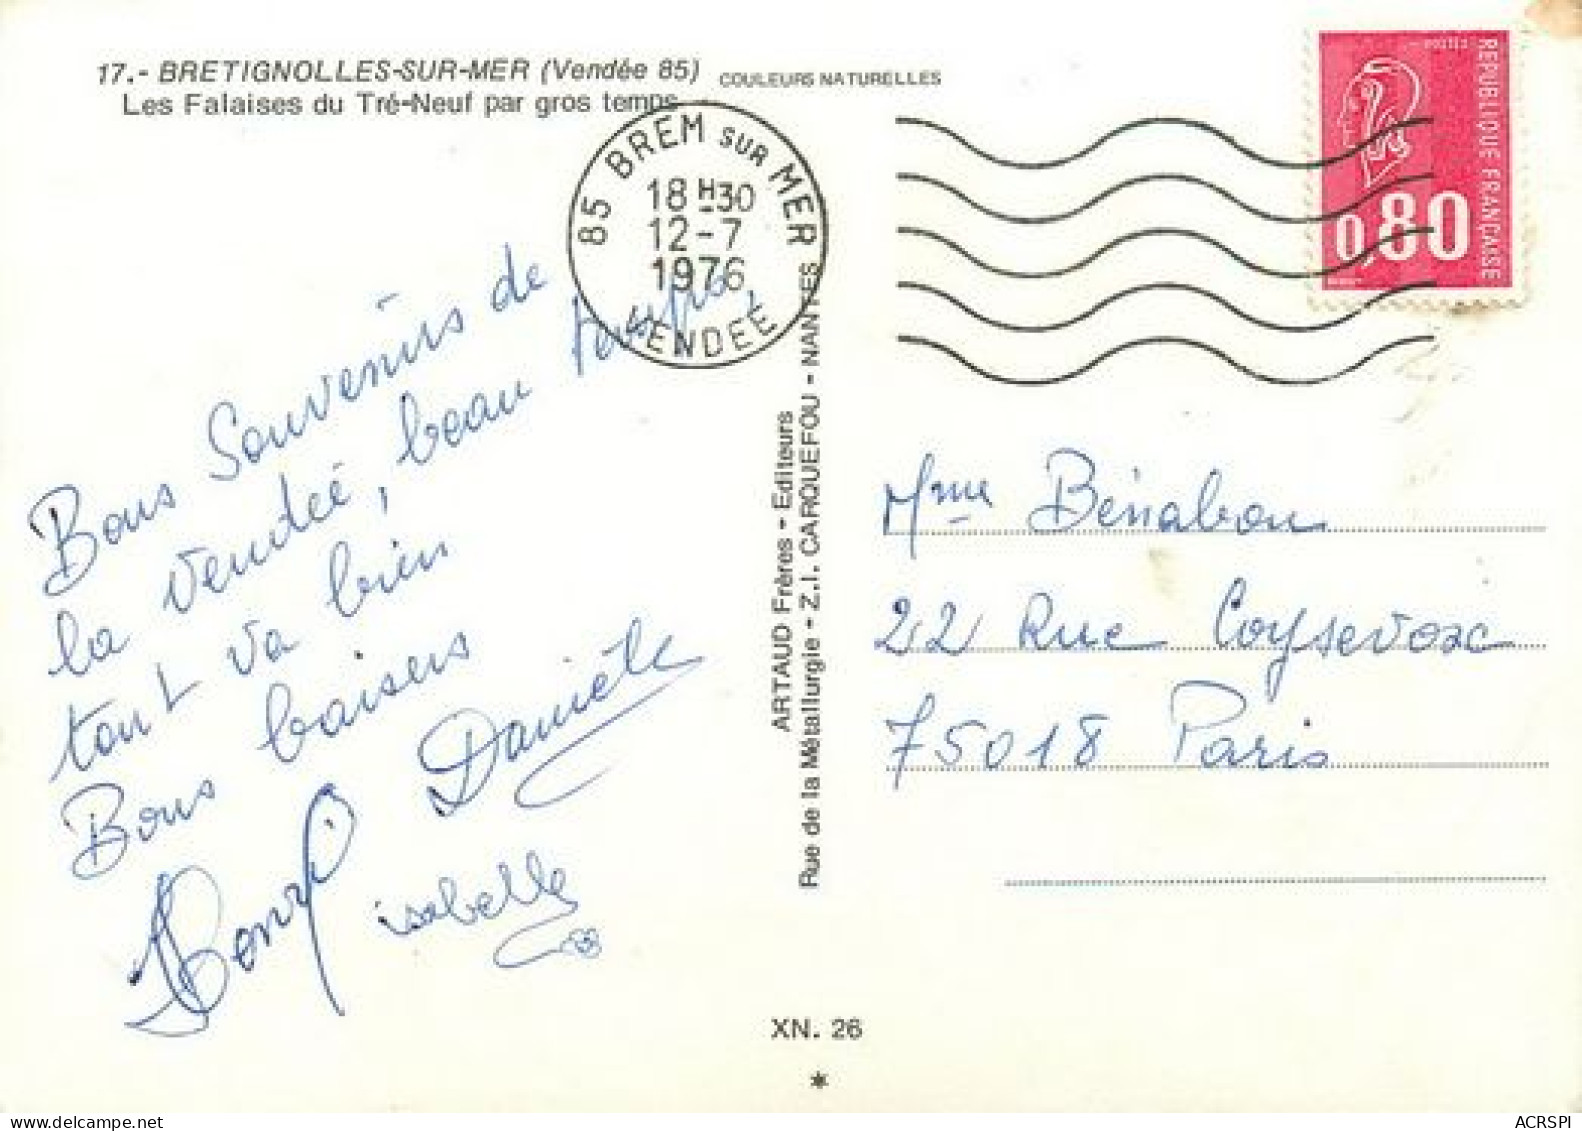 17.- BRETIGNOLLES-SUR-MER (Vendée 85) COULEURS NATURELLES
Les Falaises du Tré-Neuf par gros temps
85 BREM SUR MER
18 H 30
12-7
1976
VENDEE
POSTES
REPUBLIQUE FRANÇAISE
0,80
Bons Souvenirs de
la Vendée, beau temps,
tout va bien
Bons baisers
Danièle
isabelle
ARTAUD Frères - Editeurs
Rue de la Métallurgie - Z.I. CARQUEFOU - NANTES
Mme Bénabou
22 Rue Coysevoxc
75018 Paris
XN. 26
*
ACRSPI